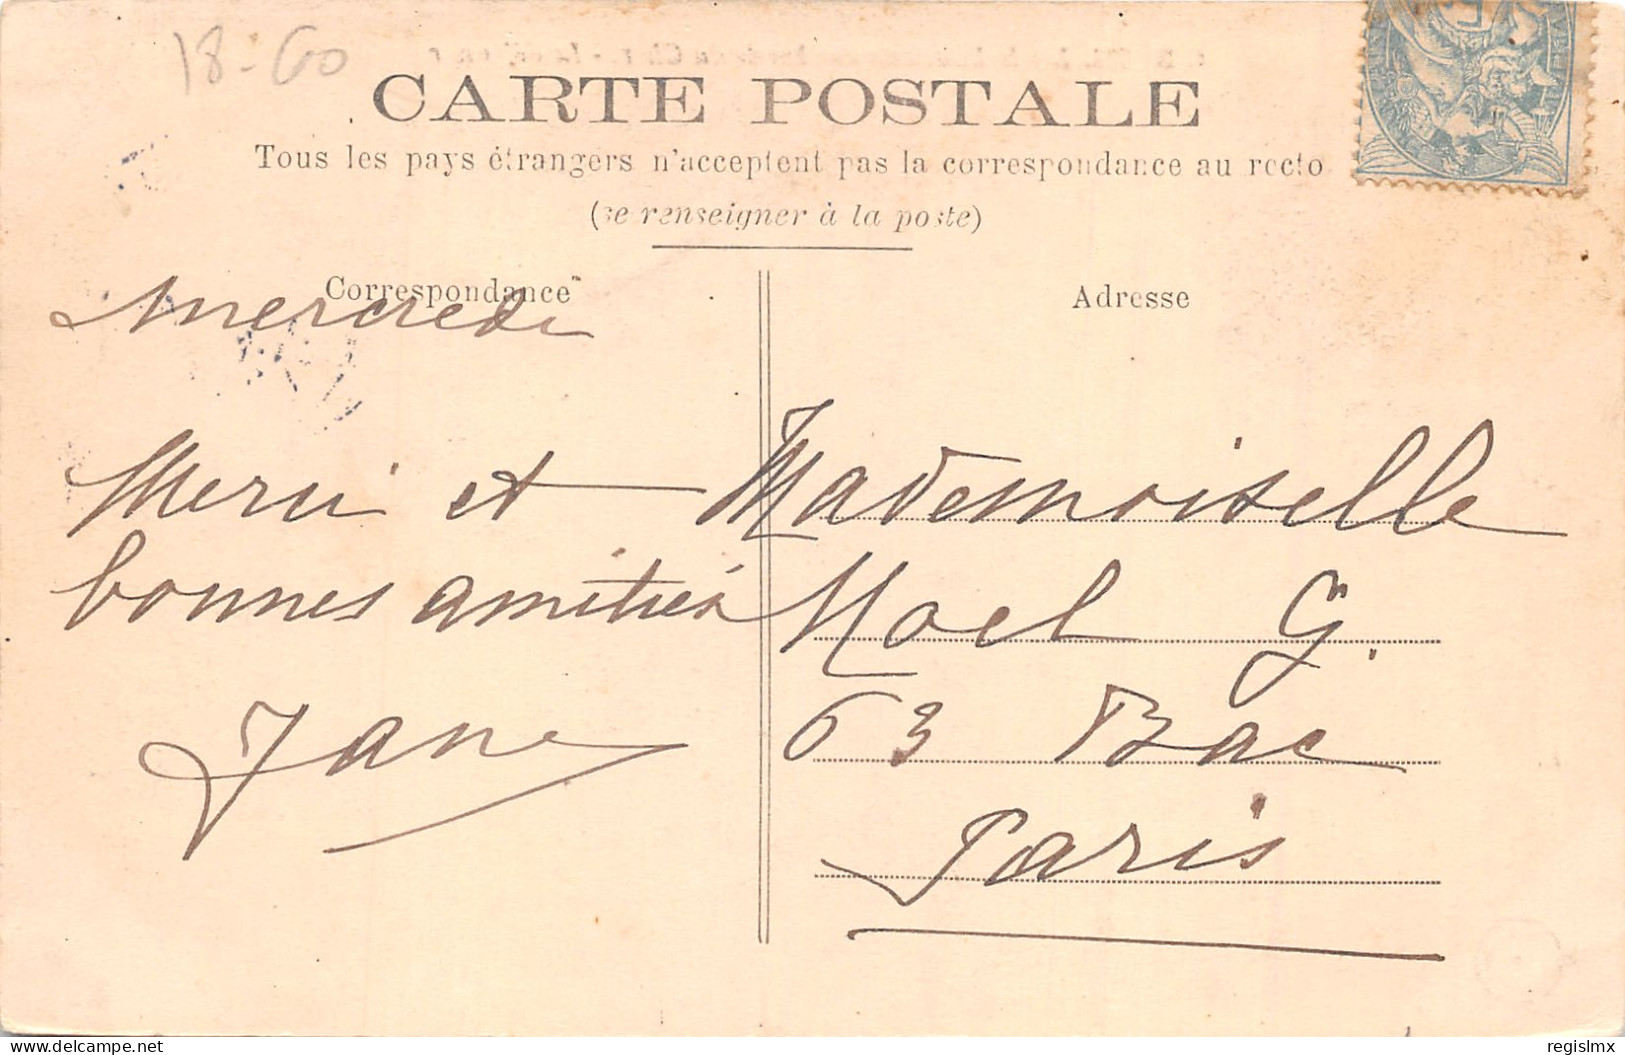 18-60
CARTE POSTALE
Tous les pays étrangers n'acceptent pas la correspondance au recto
(se renseigner à la poste)
Correspondance
Adresse
mercredi
Merci et
bonnes amitiés
Jane
Mademoiselle
Noel G.
63 Bac
Paris
delcampe.net
regislmx